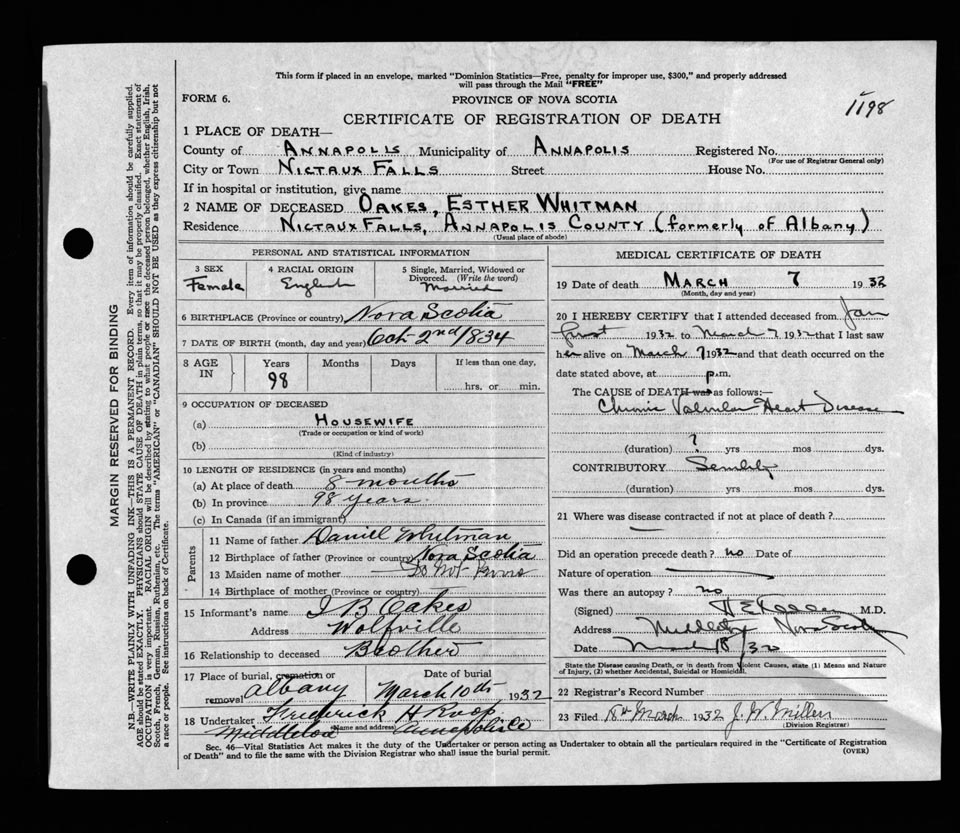 This form if placed in an envelope, marked "Dominion Statistics—Free, penalty for improper use, $300," and properly addressed
will pass through the Mail "FREE"
FORM 6.
PROVINCE OF NOVA SCOTIA
1198
CERTIFICATE OF REGISTRATION OF DEATH
1 PLACE OF DEATH—
County of ANNAPOLIS Municipality of ANNAPOLIS Registered No.
(For use of Registrar General only)
City or Town NICTAUX FALLS Street House No.
If in hospital or institution, give name
2 NAME OF DECEASED OAKES, ESTHER WHITMAN
Residence NICTAUX FALLS, ANNAPOLIS COUNTY (formerly of Albany)
(Usual place of abode)
PERSONAL AND STATISTICAL INFORMATION
3 SEX Female
4 RACIAL ORIGIN English
5 Single, Married, Widowed or Divorced. (Write the word) Married
6 BIRTHPLACE (Province or country) Nova Scotia
7 DATE OF BIRTH (month, day and year) Oct. 2nd 1834
8 AGE IN Years Months Days If less than one day,
98 hrs. or min.
9 OCCUPATION OF DECEASED
(a) HOUSEWIFE
(Trade or occupation or kind of work)
(b)
(Kind of industry)
10 LENGTH OF RESIDENCE (in years and months)
(a) At place of death 8 months
(b) In province 98 years
(c) In Canada (if an immigrant)
Parents
11 Name of father Daniel Whitman
12 Birthplace of father (Province or country) Nova Scotia
13 Maiden name of mother Do Not Know
14 Birthplace of mother (Province or country)
15 Informant's name I B Oakes
Address Wolfville
16 Relationship to deceased Brother
17 Place of burial, cremation or removal Albany
Date of burial March 10th 1932
18 Undertaker Frederick H
Middleton Name and address Annapolis Co
MEDICAL CERTIFICATE OF DEATH
19 Date of death MARCH 7 1932
(Month, day and year)
20 I HEREBY CERTIFY that I attended deceased from Jan
first 1932 to March 7 1932 that I last saw
her alive on March 7 1932 and that death occurred on
date stated above, at p.m.
The CAUSE of DEATH was as follows:
Chronic Valvular Heart Disease
(duration) ? yrs mos dys.
CONTRIBUTORY Senility
(duration) yrs mos dys.
21 Where was disease contracted if not at place of death?
Did an operation precede death? no Date of
Nature of operation
Was there an autopsy? no
(Signed) M.D.
Address Middleton Nova Scotia
Date March 18/32
State the Disease causing Death, or in death from Violent Causes, state (1) Means and Nature
of Injury, (2) whether Accidental, Suicidal or Homicidal.
22 Registrar's Record Number
23 Filed March 1932 J. W. Miller
(Division Registrar)
Sec. 46—Vital Statistics Act makes it the duty of the Undertaker or person acting as Undertaker to obtain all the particulars required in the "Certificate of Registration
of Death" and to file the same with the Division Registrar who shall issue the burial permit.
(OVER)
MARGIN RESERVED FOR BINDING
N.B.—WRITE PLAINLY WITH UNFADING INK—THIS IS A PERMANENT RECORD. Every item of information should be carefully supplied.
AGE should be stated EXACTLY. PHYSICIANS should STATE CAUSE OF DEATH in plain terms, so that it may be properly classified. Exact statement of
OCCUPATION is very important. RACIAL ORIGIN will be described by stating to what people or race the deceased person belonged, whether English, Irish,
Scotch, French, German, Russian, Ruthenian, etc. The terms "AMERICAN" or "CANADIAN" SHOULD NOT BE USED as they express citizenship but not
a race or people. See instructions on back of Certificate.